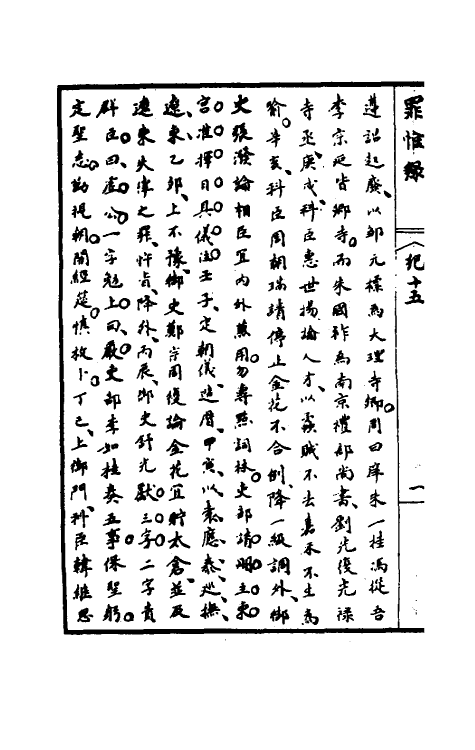 罪惟錄
紀十五
一
遵詔起廢以鄒元標為大理寺卿周曰庠朱一桂馮從吾
李宗延皆鄉寺而朱國祚為南京禮部尚書劉光復光祿
寺丞庚戌科臣惠世揚論人才以蟊賊不去嘉禾不生為
喻辛亥科臣周朝瑞請停上金花不合例降一級調外御
史張潑論相臣宜內外兼用勿專熙詞林吏部請明主東
宮准擇日具儀注壬子定朝儀進曆甲寅以袁應泰巡撫
遼東乙卯上不豫御史鄭宗周復論金花宜貯太倉並及
遼東失事之罪忤旨降外丙辰御史舒光獻三字二字責
群臣曰虛公一字勉上曰嚴吏部李如桂奏五事保聖躬
定聖志勤視朝開經筵慎枚卜丁巳上御門科臣韓繼思